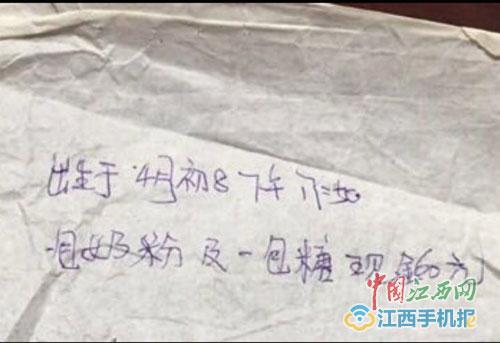 出生于4月初8下午
一包奶粉及一包糖现金
中国江西网
江西手机报